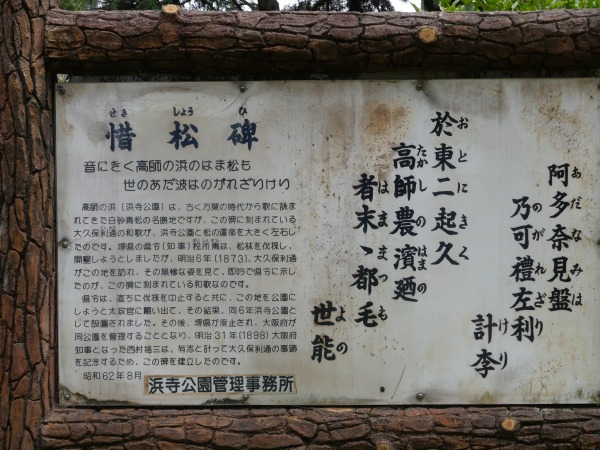 せき しょう ひ
惜松碑
音にきく高師の浜のはま松も
世のあだ波はのがれざりけり
高師の浜（浜寺公園）は、古く万葉の時代から歌に詠ま
れてきた白砂青松の名勝地ですが、この碑に刻まれている
大久保利通の和歌が、浜寺公園と松の運命を大きく左右し
たのです。堺県の県令（知事）税所篤は、松林を伐採し、
開墾しようとしましたが、明治6年（1873）、大久保利通
がこの地を訪れ、その無惨な姿を見て、即吟で県令に示し
たのが、この碑に刻まれている和歌なのです。
県令は、直ちに伐採を中止すると共に、この地を公園に
しようと太政官に願い出て、その結果、同6年浜寺公園と
して設置されました。その後、堺県が廃止され、大阪府が
同公園を管理することとなり、明治31年（1898）大阪府
知事となった西村捨三は、有志と計って大久保利通の事蹟
を記念するため、この碑を建立したのです。
昭和62年8月
浜寺公園管理事務所
於東二起久
おとにきく
高師農濱廼
たかしのはまの
者末ゝ都毛
はままつも
世能
よの
阿多奈見盤
あだなみは
乃可禮左利
のがれざり
計李
けり